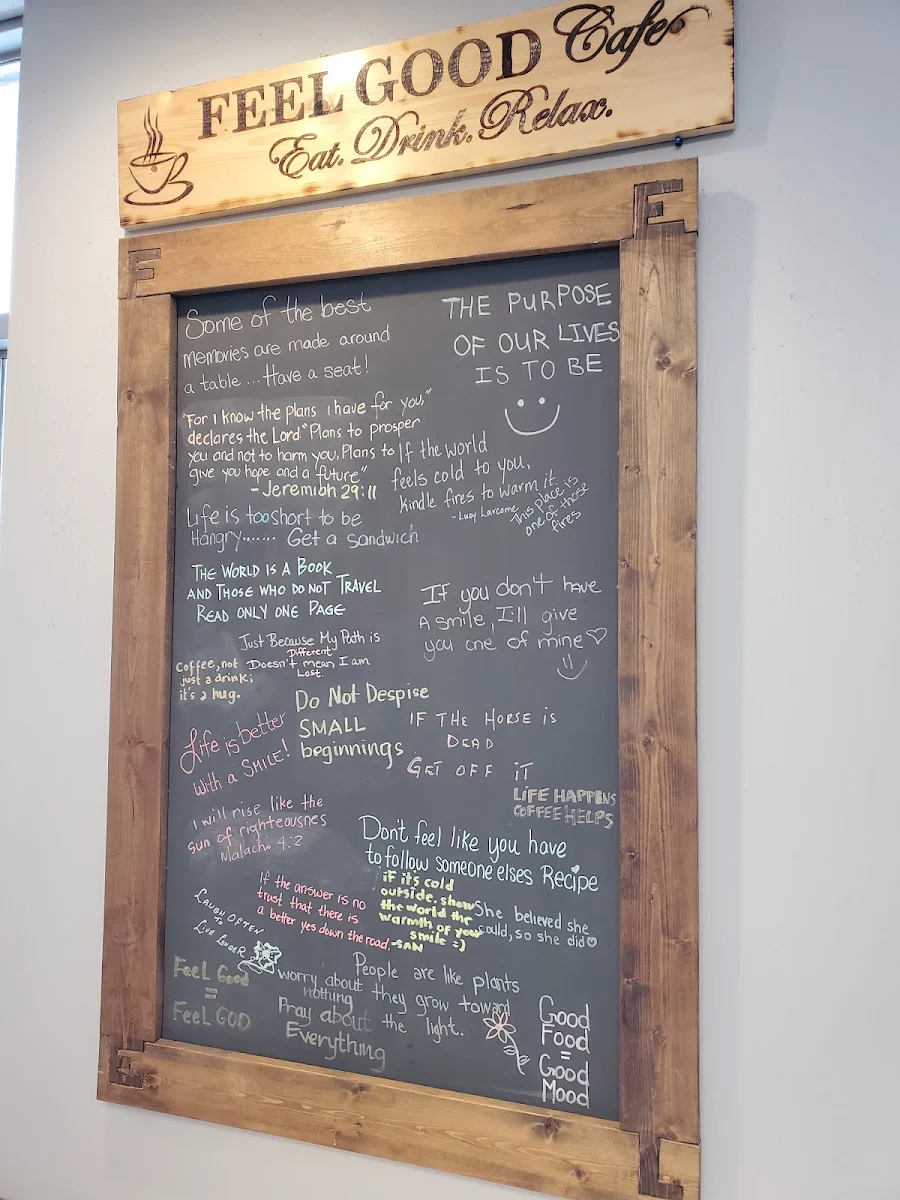 FEEL GOOD Cafe
Eat. Drink. Relax.
Some of the best
memories are made around
a table ... Have a seat!
THE PURPOSE
OF OUR LIVES
IS TO BE
"For I know the plans I have for you,"
declares the Lord "Plans to prosper
you and not to harm you, Plans to
give you hope and a future"
- Jeremiah 29:11
If the world
feels cold to you,
kindle fires to warm it
- Lucy Larcome
This place is
one of those
fires
Life is too short to be
Hangry....... Get a sandwich
THE WORLD IS A BOOK
AND THOSE WHO DO NOT TRAVEL
READ ONLY ONE PAGE
If you don't have
A smile, I'll give
you one of mine♡
Just Because My Path is
Different
Doesn't mean I am
Lost.
Coffee, not
just a drink;
it's a hug.
Do Not Despise
SMALL
beginnings
IF THE HORSE IS
DEAD
GET OFF IT
Life is better
with a SMILE!
LIFE HAPPENS
COFFEE HELPS
I will rise like the
sun of righteousnes
Malachi 4:2
Don't feel like you have
to follow someone elses Recipe
If the answer is no
trust that there is
a better yes down the road.
-SAN
if its cold
outside, show
the world the
warmth of your
smile =)
She believed she
could, so she did♡
LAUGH OFTEN
TO
LIVE LONGER
Feel Good
=
Feel GOD
worry about
nothing
Pray about
Everything
People are like plants
they grow toward
the light..
Good
Food
=
Good
Mood